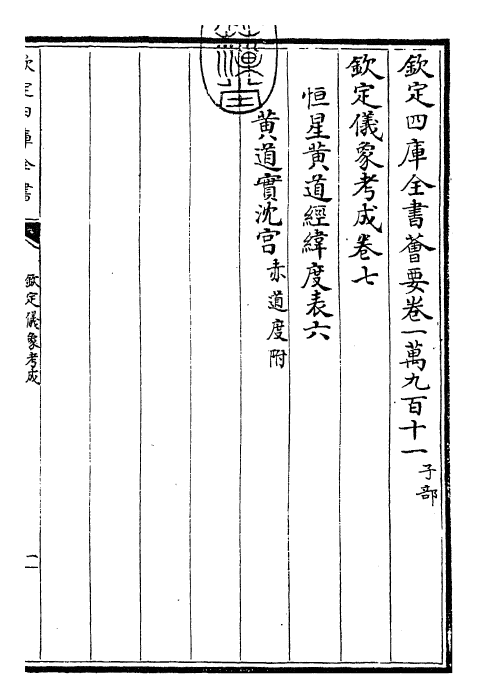 欽定四庫全書薈要卷一萬九百十一子部
欽定儀象考成卷七
恒星黃道經緯度表六
黃道實沈宮赤道度附
欽定四庫全書
欽定儀象考成
一